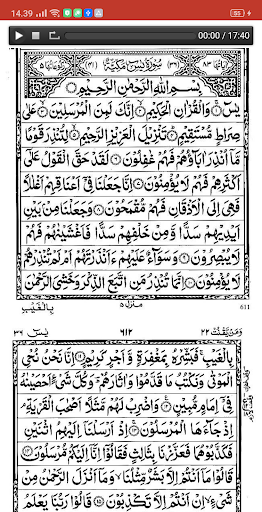 14.39
00:00 / 17:40
سُوْرَةُ يٰسٓ مَكِّيَّةٌ
بِسْمِ اللّٰهِ الرَّحْمٰنِ الرَّحِيْمِ
يٰسٓ وَالْقُرْاٰنِ الْحَكِيْمِ اِنَّكَ لَمِنَ الْمُرْسَلِيْنَ عَلٰى
صِرَاطٍ مُّسْتَقِيْمٍ تَنْزِيْلَ الْعَزِيْزِ الرَّحِيْمِ لِتُنْذِرَ قَوْمًا
مَّآ اُنْذِرَ اٰبَآؤُهُمْ فَهُمْ غٰفِلُوْنَ لَقَدْ حَقَّ الْقَوْلُ عَلٰٓى
اَكْثَرِهِمْ فَهُمْ لَا يُؤْمِنُوْنَ اِنَّا جَعَلْنَا فِيْٓ اَعْنَاقِهِمْ اَغْلٰلًا
فَهِيَ اِلَى الْاَذْقَانِ فَهُمْ مُّقْمَحُوْنَ وَجَعَلْنَا مِنْۢ بَيْنِ
اَيْدِيْهِمْ سَدًّا وَّمِنْ خَلْفِهِمْ سَدًّا فَاَغْشَيْنٰهُمْ فَهُمْ
لَا يُبْصِرُوْنَ وَسَوَآءٌ عَلَيْهِمْ ءَاَنْذَرْتَهُمْ اَمْ لَمْ تُنْذِرْهُمْ
لَا يُؤْمِنُوْنَ اِنَّمَا تُنْذِرُ مَنِ اتَّبَعَ الذِّكْرَ وَخَشِيَ الرَّحْمٰنَ
بِالْغَيْبِ منزل ٥ 611
وَمَن يَّقْنُتْ ٢٢ ٦١٢ يٰسٓ ٣٦
بِالْغَيْبِ فَبَشِّرْهُ بِمَغْفِرَةٍ وَّاَجْرٍ كَرِيْمٍ اِنَّا نَحْنُ نُحْيِ
الْمَوْتٰى وَنَكْتُبُ مَا قَدَّمُوْا وَاٰثَارَهُمْ وَكُلَّ شَيْءٍ اَحْصَيْنٰهُ
فِيْٓ اِمَامٍ مُّبِيْنٍ وَاضْرِبْ لَهُمْ مَّثَلًا اَصْحٰبَ الْقَرْيَةِ
اِذْ جَآءَهَا الْمُرْسَلُوْنَ اِذْ اَرْسَلْنَآ اِلَيْهِمُ اثْنَيْنِ
فَكَذَّبُوْهُمَا فَعَزَّزْنَا بِثَالِثٍ فَقَالُوْٓا اِنَّآ اِلَيْكُمْ مُّرْسَلُوْنَ
قَالُوْا مَآ اَنْتُمْ اِلَّا بَشَرٌ مِّثْلُنَا وَمَآ اَنْزَلَ الرَّحْمٰنُ مِنْ
شَيْءٍ اِنْ اَنْتُمْ اِلَّا تَكْذِبُوْنَ قَالُوْا رَبُّنَا يَعْلَمُ